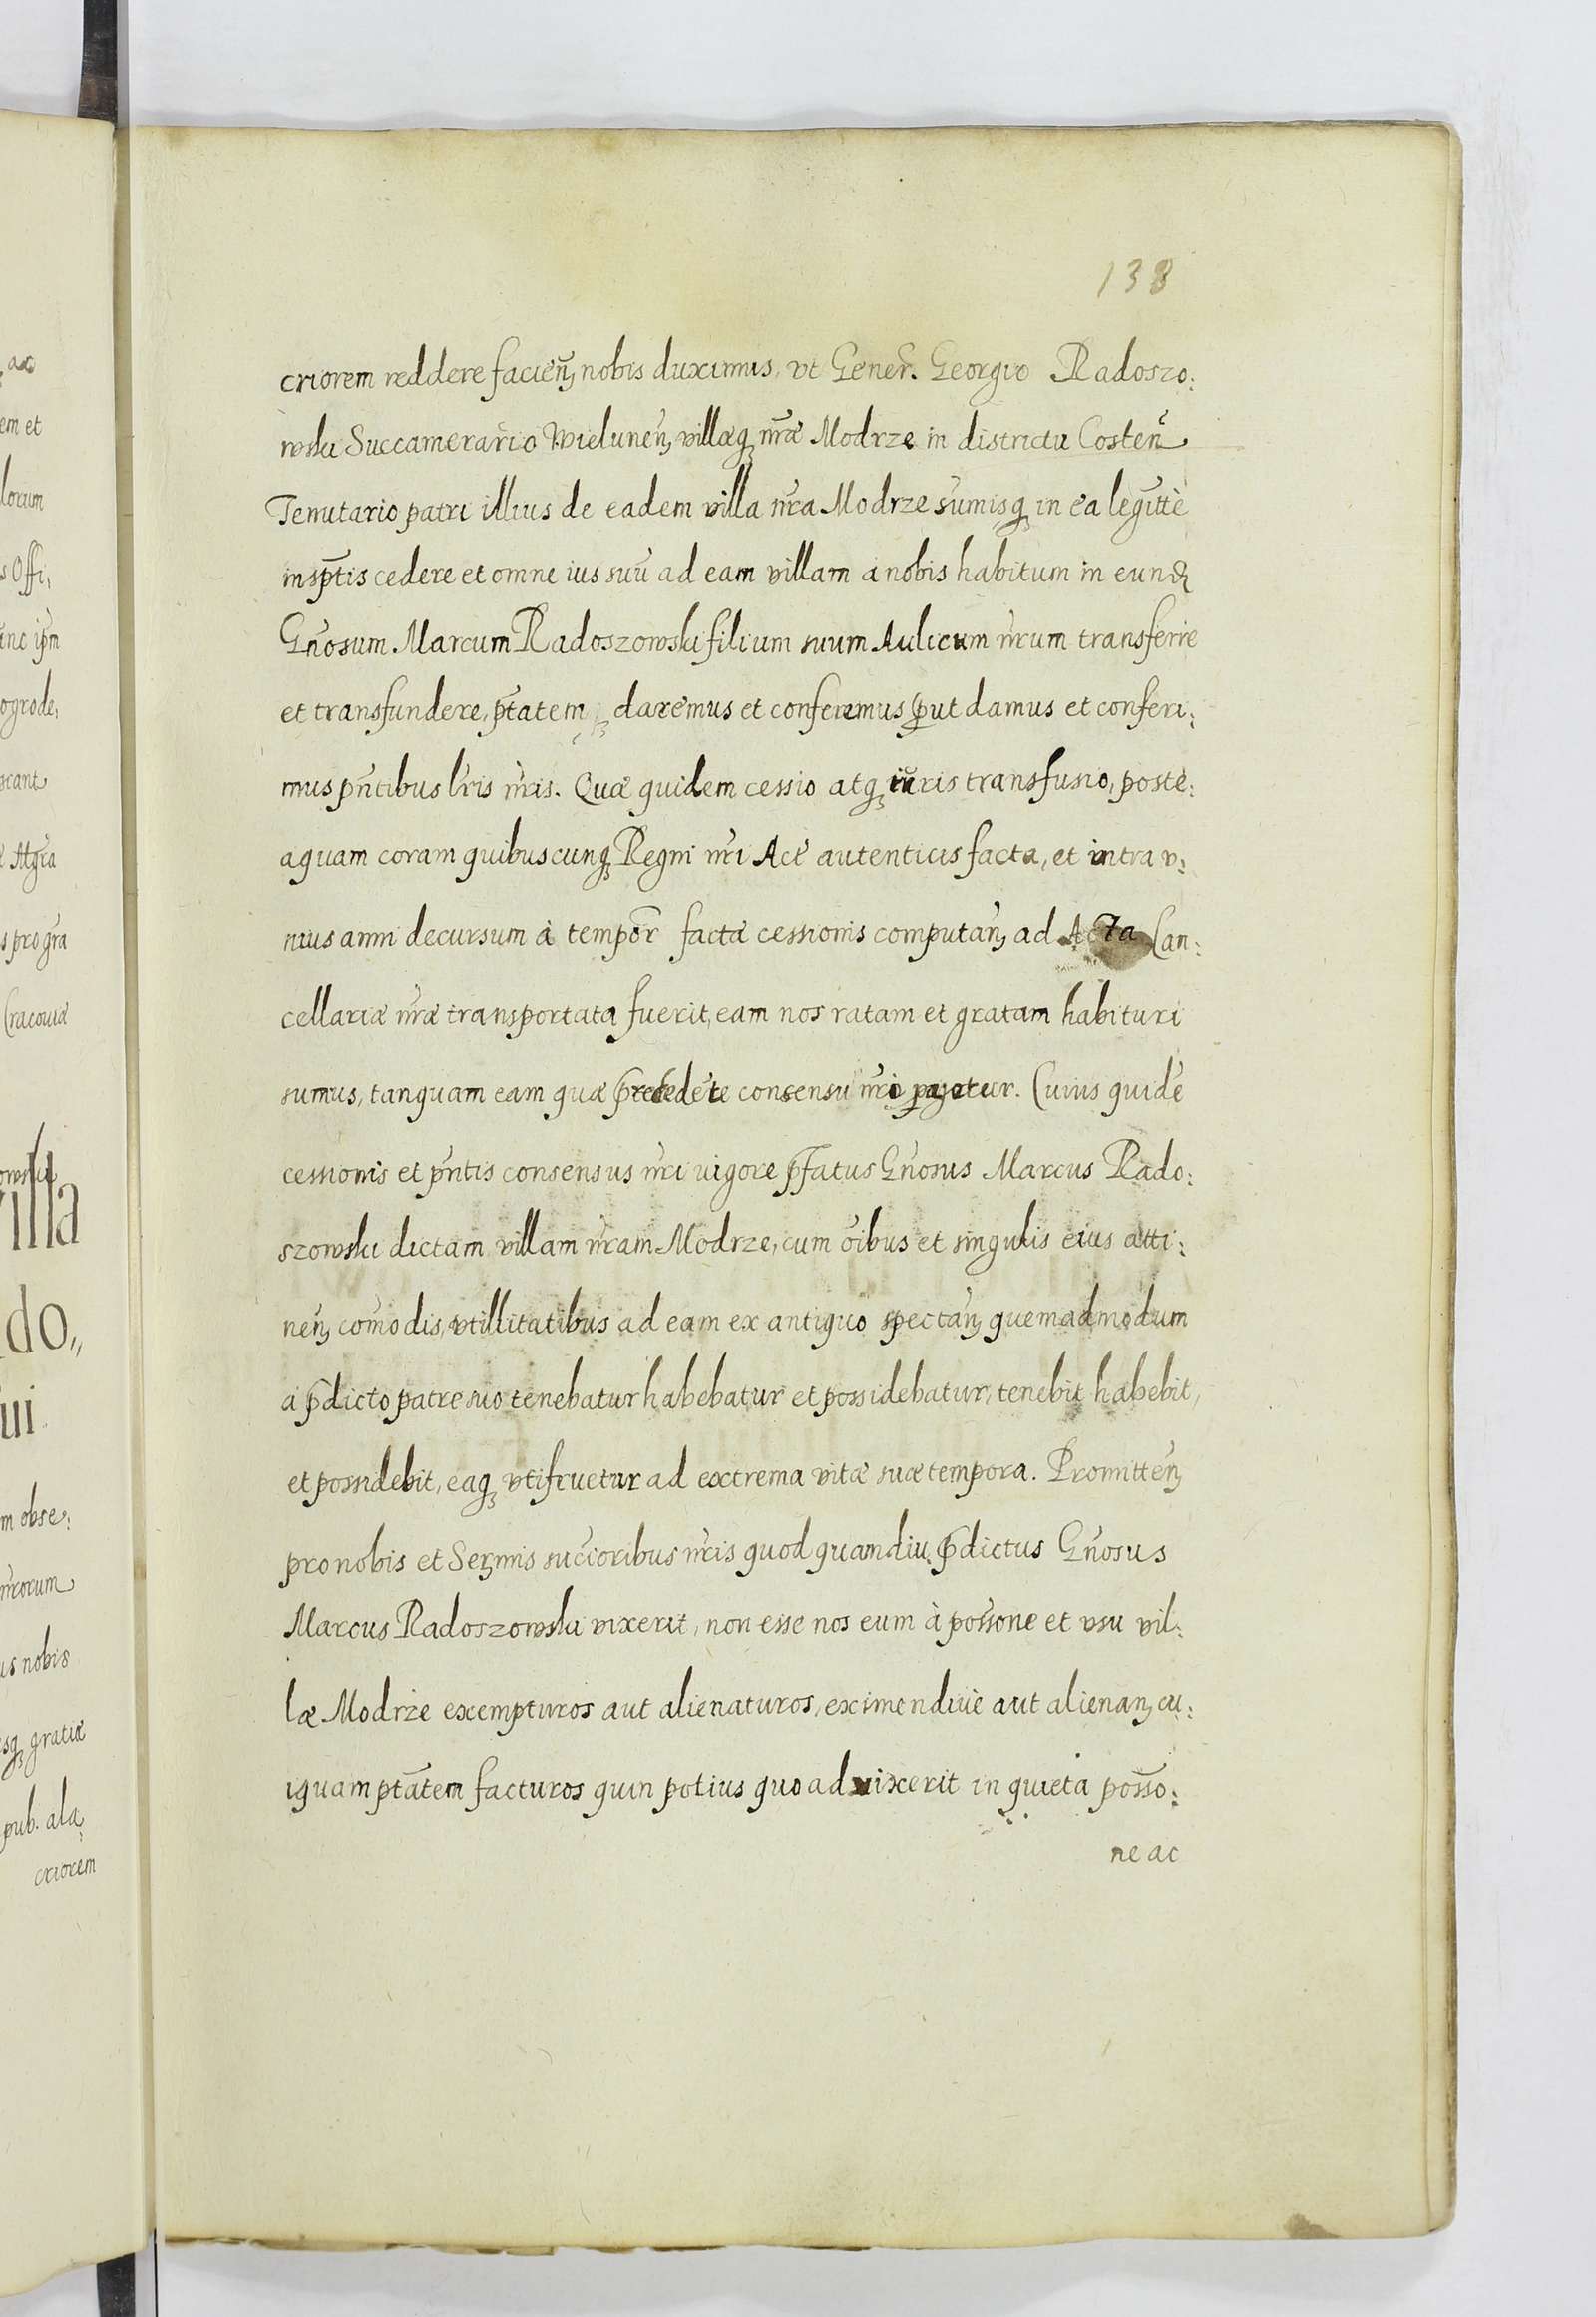 138
criorem reddere facien̄, nobis duximus, vt Gener̄. Georgio Radoszo:
wski Succamerario Wielunen̄, villæq₃ nr̄æ Modrze in districtu Costen̄
Tenutario patri illius de eadem villa nr̄a Modrze sumisq₃ in ea legittè
insp̄tis cedere et omne ius suū ad eam villam a nobis habitum in eund
Gn̄osum Marcum Radoszowski filium suum Aulicum nr̄um transferre
et transfundere, p̄tatem daremus et conferemus put damus et conferi:
mus pn̄tibus lr̄is nr̄is. Quæ quidem cessio atq₃ iuris transfusio, poste:
aquam coram quibuscunq₃ Regni nr̄i Act autenticis facta, et intra v:
nius anni decursum à tempor̄ factæ cessionis computan̄, ad Acta Can:
cellariæ nr̄æ transportata fuerit, eam nos ratam et gratam habituri
sumus, tanquam eam quæ precedēte consensu nr̄o Cuius quidē
cessionis et pn̄tis consensus nr̄i vigore p̄fatus Gn̄osus Marcus Rado:
szowski dictam villam nr̄am Modrze, cum oībus et singulis eius atti:
nen̄, com̄odis, vtillitatibus ad eam ex antiquo spectan̄, quemadmodum
a p̄dicto patre suo tenebatur habebatur et possidebatur, tenebit habebit,
et possidebit, eaq₃ vtifruetur ad extrema vitæ suæ tempora. Promitten̄,
pro nobis et Sermis succ̄oribus nr̄is quod quamdiu p̄dictus Gn̄osus
Marcus Radoszowski vixerit, non esse nos eum à poss̄one et vsu vil:
læ Modrze exempturos aut alienaturos, eximendiue aut alienan̄, cu:
iquam ptātem facturos quin potius quoad vixerit in quieta poss̄o:
ne ac
em et
nobis
gratiæ
pub. ala
criorem
Cracouiæ
villa
do,,
ui